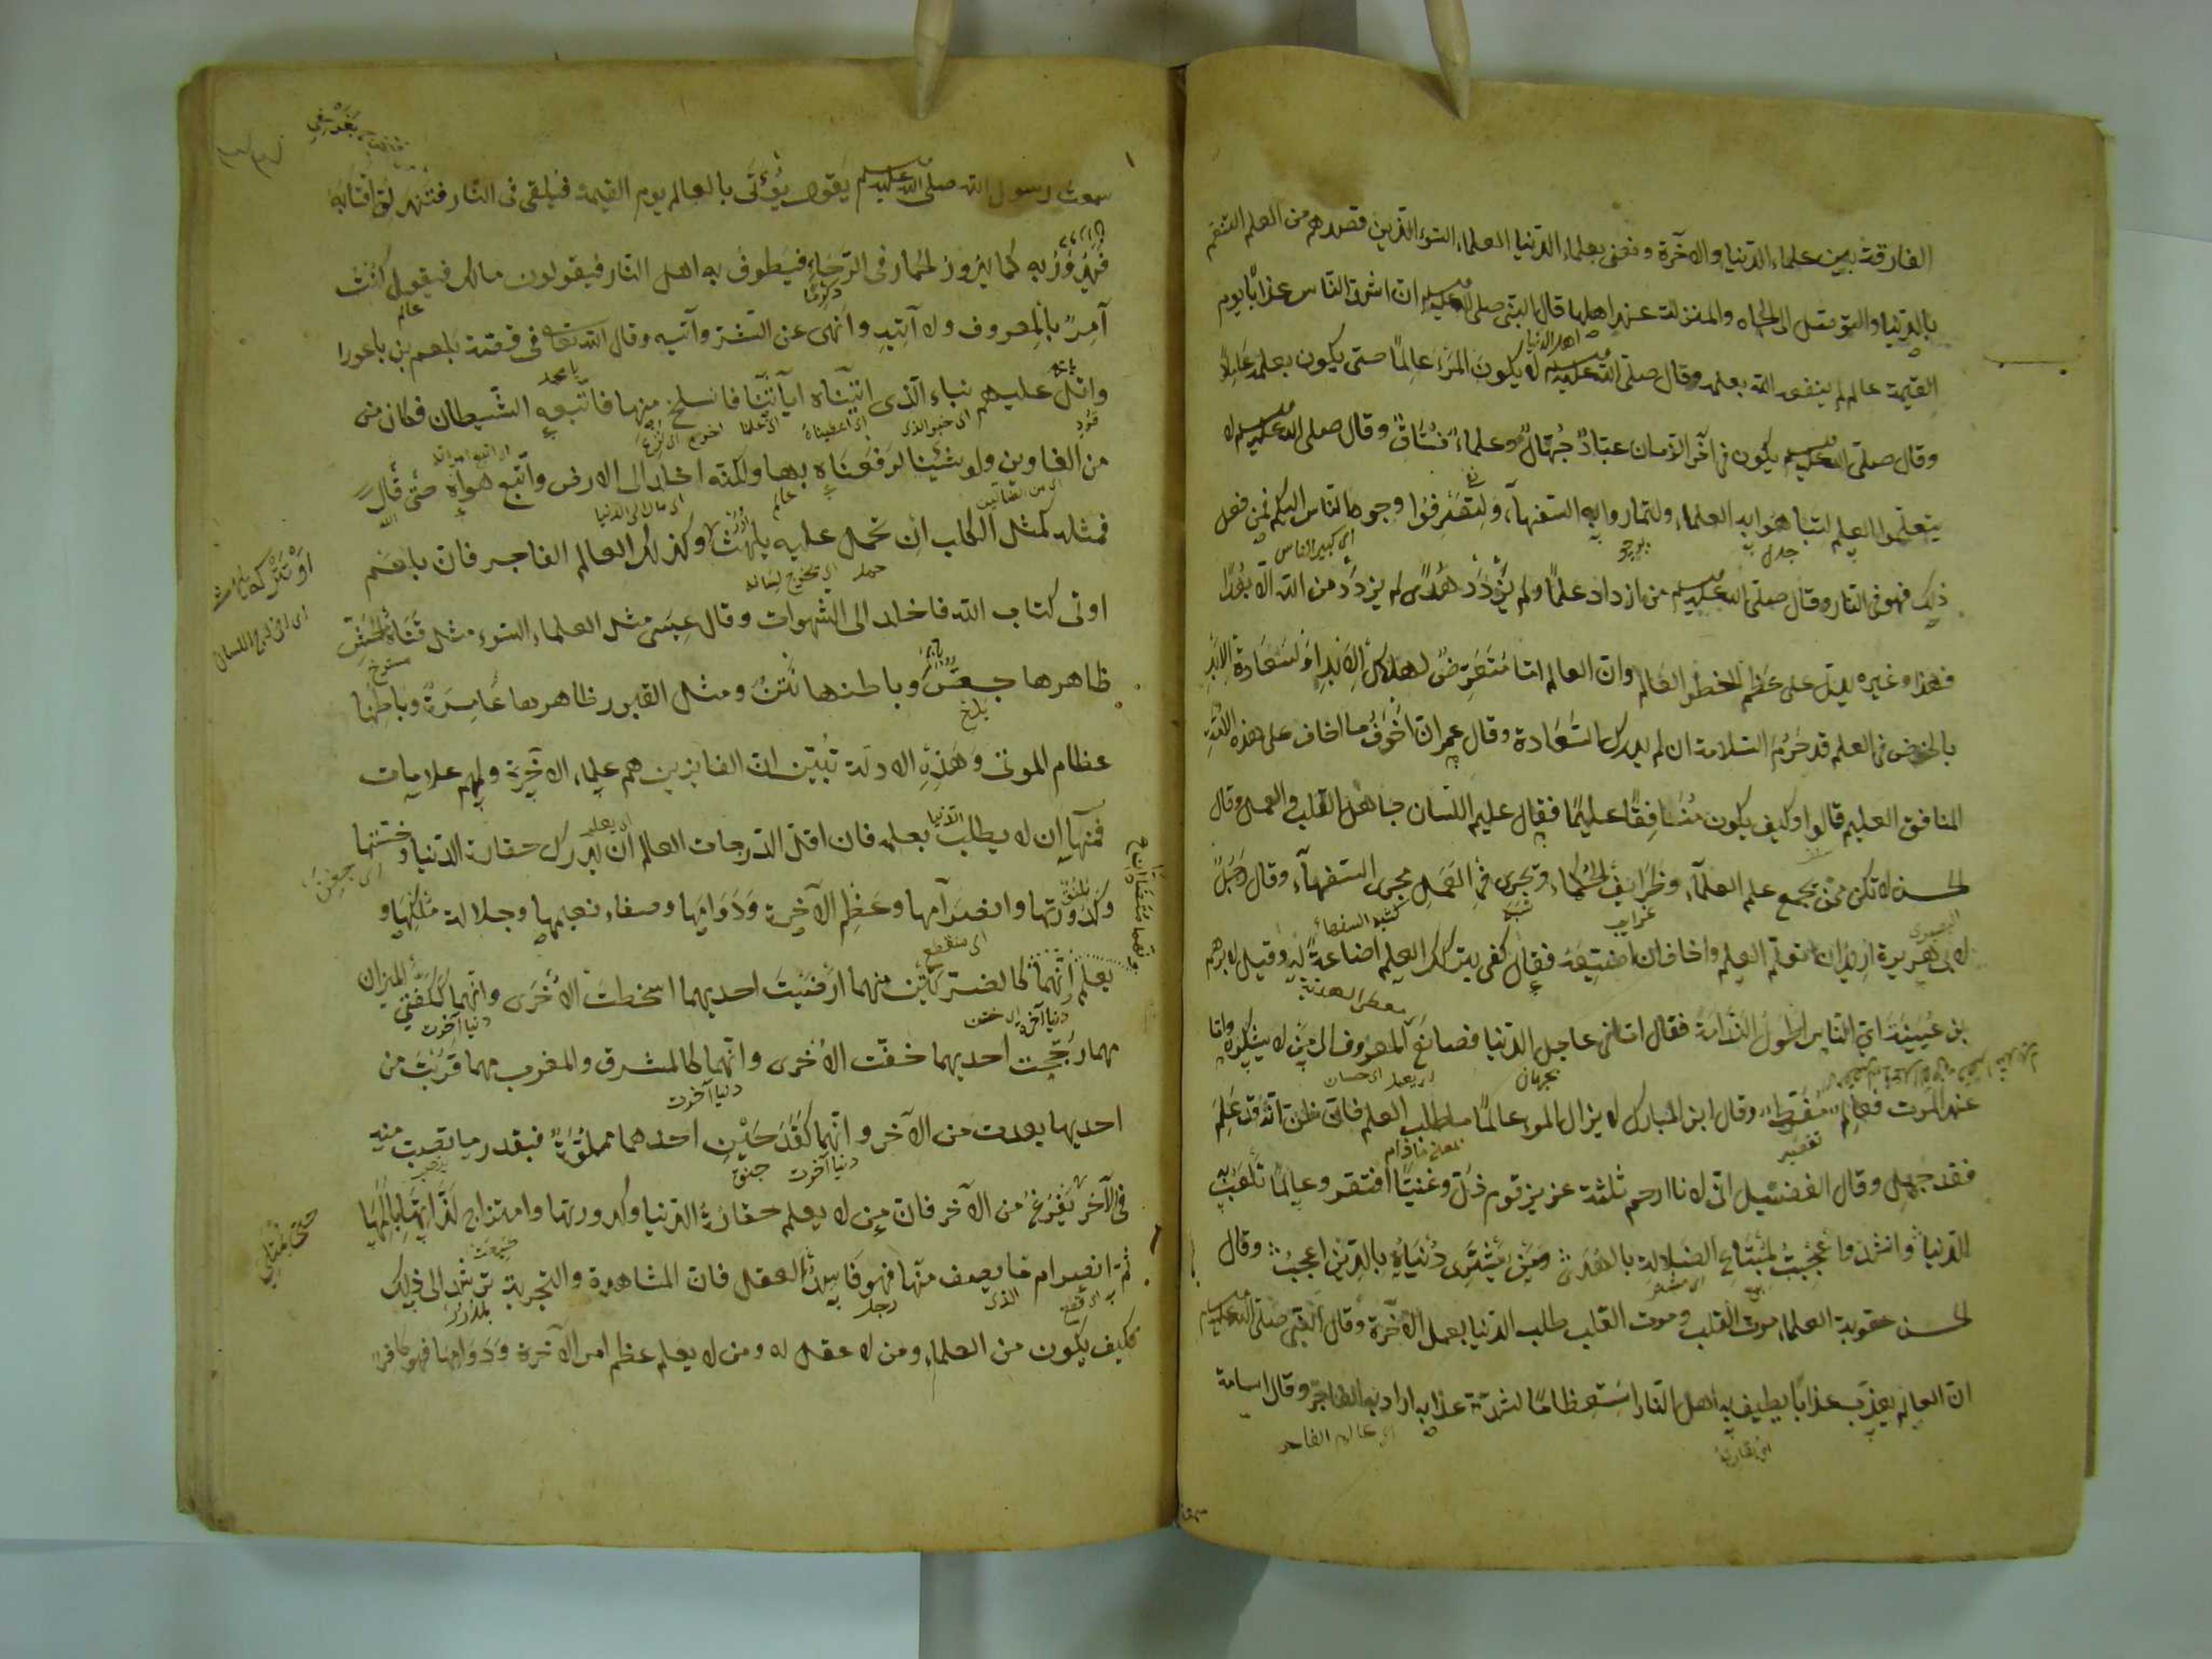 الفارقة بين علماء الدنيا والآخرة ونعنى بعلماء الدنيا العلماء السوء الذين قصدهم من العلم التنعم
بالدنيا والتوصل الى الجاه والمنزلة عند اهلها قال النبي صلى الله عليه وسلم ان اشد الناس عذابا يوم
اهل الدنيا
القيمة عالم لم ينفعه الله بعلمه وقال صلى الله عليه وسلم لا يكون المرء عالما حتى يكون بعلمه عاملا
وقال صلى الله عليه وسلم يكون في آخر الزمان عباد جهال وعلماء فساق وقال صلى الله عليه وسلم لا
يتعلموا العلم لتباهوا به العلماء ولتماروا به السفهآء ولتصرفوا وجوه الناس اليكم فمن فعل
جدل
اى كبير الناس
ذلك فهو في النار وقال صلى الله عليه وسلم من ازداد علما ولم يزدد هدى لم يزدد من الله الا بعدا
فهذا وغيره يدل على عظم الخطر العالم وان العالم اما متعرض لهلاك الابد او لسعادة الابد
بالخوض في العلم قد حرم السلامة ان لم يدرك السعادة وقال عمر ان اخوف ما اخاف على هذه الامة
المنافق العليم قالوا وكيف يكون منافقا عليما فقال عليم اللسان جاهل القلب والعمل وقال
الحسن لا تكن ممن يجمع علم العلمآء وظرايف الحكماء وتجرى في العمل مجرى السفهآء وقال رجل
البصرى
غرايب
لابى هريرة اريد ان اتعلم العلم واخاف ان اضيعه فقال كفى بترك العلم اضاعة له وقيل لابرهيم
بن عيينة اى الناس اطول الندامة فقال اما في عاجل الدنيا فصانع المعروف الى من لا يشكره واما
عند الموت فعالم مفرط وقال ابن المبارك لا يزال المرء عالما ما طلب العلم فاذا ظن انه قد علم
فقد جهل وقال الفضيل انى لانا ارحم ثلثة عزيز قوم ذل وغنيا افتقر وعالما تلعب به
الدنيا وانشد واعجبت لمبتاع الضلالة بالهدى ومن يشترى دنياه بالدين اعجب وقال
الحسن عقوبة العلماء موت القلب وموت القلب طلب الدنيا بعمل الآخرة وقال النبي صلى الله عليه وسلم
ان العالم يعذب عذابا يطيف به اهل النار استعظاما لشدة عذابه اراد به الفاجر وقال اسامة
اى عالم الفاجر
سمعت رسول الله صلى الله عليه وسلم يقول يؤتى بالعالم يوم القيمة فيلقى في النار فتندلق اقتابه
فيدور به كما يدور الحمار في الرحاء فيطوف به اهل النار فيقولون مالك فيقول كنت
عالم
آمر بالمعروف ولا آتيه وانهى عن الشر وآتيه وقال الله تعالى في قصة بلعم بن باعورا
يا محمد
واتل عليهم نباء الذى اتيناه آياتنا فانسلخ منها فاتبعه الشيطان فكان من
اى خبر الذى
اى اعطيناه
من الغاوين ولو شئنا لرفعناه بها ولكنه اخلد الى الارض واتبع هواه حتى قال
اى من الضالين
اى مال الى الدنيا
فمثله كمثل الكلب ان تحمل عليه يلهث وكذلك العالم الفاجر فان بلعم
او تتركه يلهث
اى يخرج لسانه
اوتى كتاب الله فاخلد الى الشهوات وقال عيسى مثل العلماء السوء مثل قناة الحش
مستراح
ظاهرها جص وباطنها نتن ومثل القبور ظاهرها عامرة وباطنها
عظام الموتى وهذه الادلة تبين ان الفايزين هم علماء الآخرة ولهم علامات
فمنها ان لا يطلب الدنيا بعلمه فان اقل الدرجات العالم ان يدرك حقارة الدنيا وخستها
وكدورتها وانصرامها وعظم الآخرة ودوامها وصفاء نعيمها وجلالة ملكها و
اى منقطع
يعلم انهما كالضرتين مهما ارضيت احديهما اسخطت الاخرى وانهما ككفتي الميزان
دنيا آخرت
مهما رجحت احديهما خفت الاخرى وانهما كالمشرق والمغرب مهما قربت من
دنيا آخرت
احديها بعدت من الآخر وانهما كقدحين احدهما مملوة فبقدر ما تصب منه
دنيا آخرت
في الآخر يفرغ من الآخر فان من لا يعلم حقارة الدنيا وكدورتها وامتزاج لذاتها بالمها
حتى يمتلى
ثم انصرام ما يصف منها فهو فاسد العقل فان المشاهدة والتجربة ترشد الى ذلك
الذى
رجل
فكيف يكون من العلماء ومن لا عقل له ومن لا يعلم عظم امر الآخرة ودوامها فهو كافر